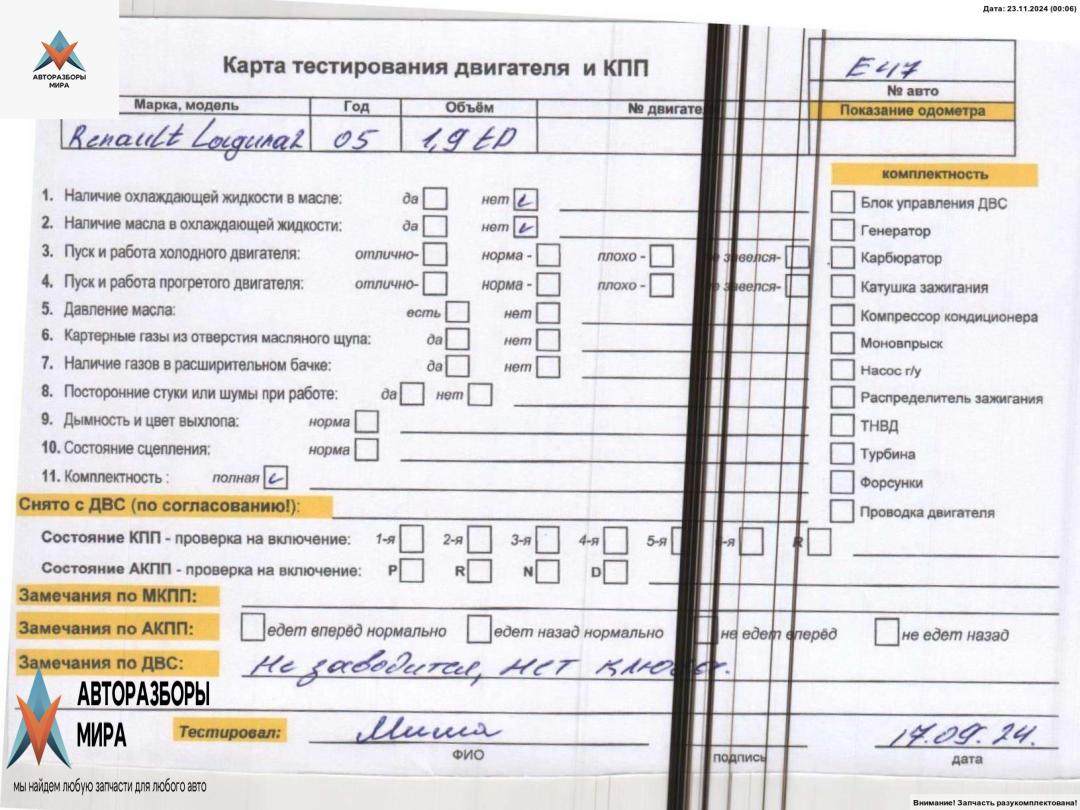 Дата: 23.11.2024 (00:06)
АВТОРАЗБОРЫ
МИРА
Карта тестирования двигателя и КПП
E47
№ авто
Марка, модель Год Объём № двигате
Показание одометра
Renault Laguna2 05 1,9 tD
комплектность
1. Наличие охлаждающей жидкости в масле: да нет
2. Наличие масла в охлаждающей жидкости: да нет
3. Пуск и работа холодного двигателя: отлично- норма - плохо - не завелся-
4. Пуск и работа прогретого двигателя: отлично- норма - плохо - не завелся-
5. Давление масла: есть нет
6. Картерные газы из отверстия масляного щупа: да нет
7. Наличие газов в расширительном бачке: да нет
8. Посторонние стуки или шумы при работе: да нет
9. Дымность и цвет выхлопа: норма
10. Состояние сцепления: норма
11. Комплектность : полная
Блок управления ДВС
Генератор
Карбюратор
Катушка зажигания
Компрессор кондиционера
Моновпрыск
Насос г/у
Распределитель зажигания
ТНВД
Турбина
Форсунки
Проводка двигателя
Снято с ДВС (по согласованию!):
Состояние КПП - проверка на включение: 1-я 2-я 3-я 4-я 5-я 6-я R
Состояние АКПП - проверка на включение: P R N D
Замечания по МКПП:
Замечания по АКПП: едет вперёд нормально едет назад нормально не едет вперёд не едет назад
Замечания по ДВС: Не заводится, нет ключа.
АВТОРАЗБОРЫ
МИРА
мы найдем любую запчасти для любого авто
Тестировал: Миша 17.09.24.
ФИО подпись дата
Внимание! Запчасть разукомплектована!